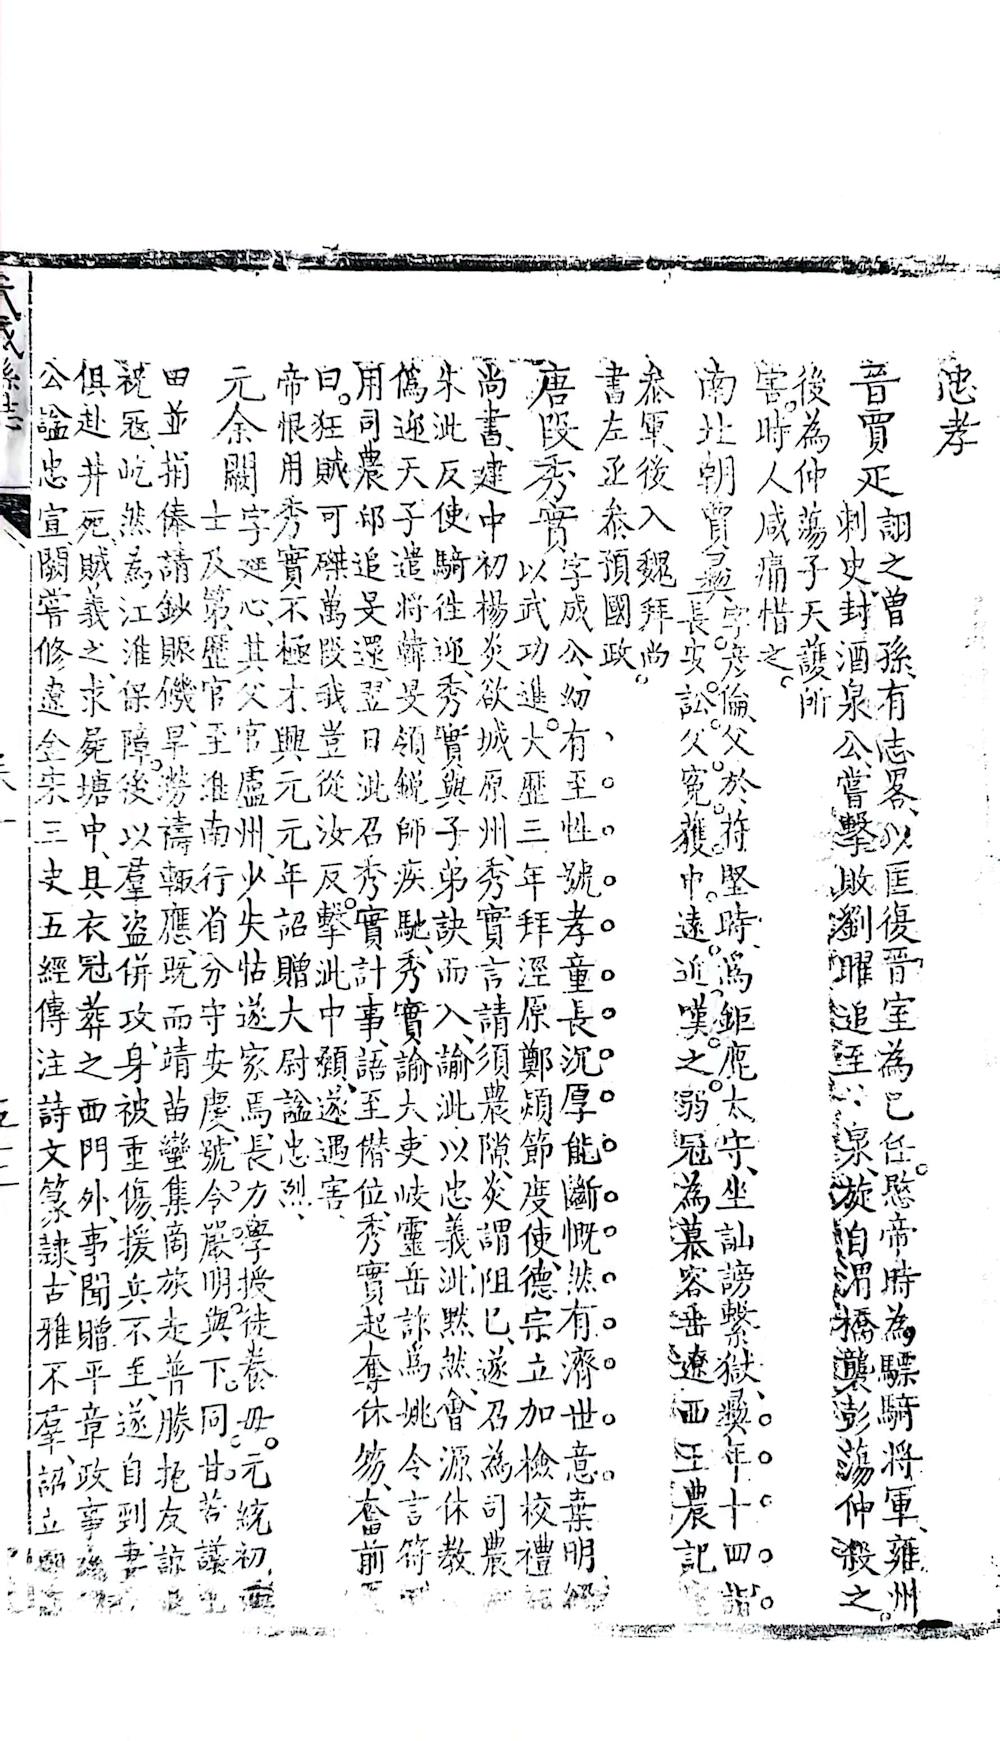 忠孝
晉賈疋 詡之曾孫有志畧以匡復晉室為己任愍帝時為驃騎將軍雍州
刺史封酒泉公嘗擊敗劉曜追至 泉旋自渭橋襲彭蕩仲殺之
後為仲蕩子天護所
害時人咸痛惜之
南北朝賈彝 字彥倫父於苻堅時為鉅鹿太守坐訕謗繫獄彝年十四詣
長安訟父寃獲申遠近嘆之弱冠為慕容垂遼西王農記
叅軍後入魏拜尚
書左丞叅預國政
唐段秀實 字成公幼有至性號孝童長沉厚能斷慨然有濟世意舉明經
以武功進大歷三年拜涇原鄭潁節度使德宗立加檢校禮
尚書建中初楊炎欲城原州秀實言請須農隙炎謂阻已遂召為司農
朱泚反使騎往迎秀實與子弟訣而入諭泚以忠義泚默然會源休教
僞迎天子遣將韓旻領銳師疾馳秀實諭大吏岐靈岳詐為姚令言符
用司農印追旻還翌日泚召秀實計事語至僭位秀實起奪休笏奮前
曰狂賊可磔萬段我豈從汝反擊泚中顙遂遇害
帝恨用秀實不極才興元元年詔贈大尉諡忠烈
元余闕 字廷心其父官廬州少失怙遂家焉長力學授徒養母元統初
士及第歷官至淮南行省分守安慶號令嚴明與下同甘苦議
田並捐俸請鈔賑饑旱澇禱輙應既而靖苗蠻集商旅走普勝拒友諒
視冦屹然為江淮保障後以羣盜併攻身被重傷援兵不至遂自刎妻
俱赴井死賊義之求屍塘中具衣冠葬之西門外事聞贈平章政事
公諡忠宣闕嘗修遼金宋三史五經傳注詩文篆隸古雅不羣詔立